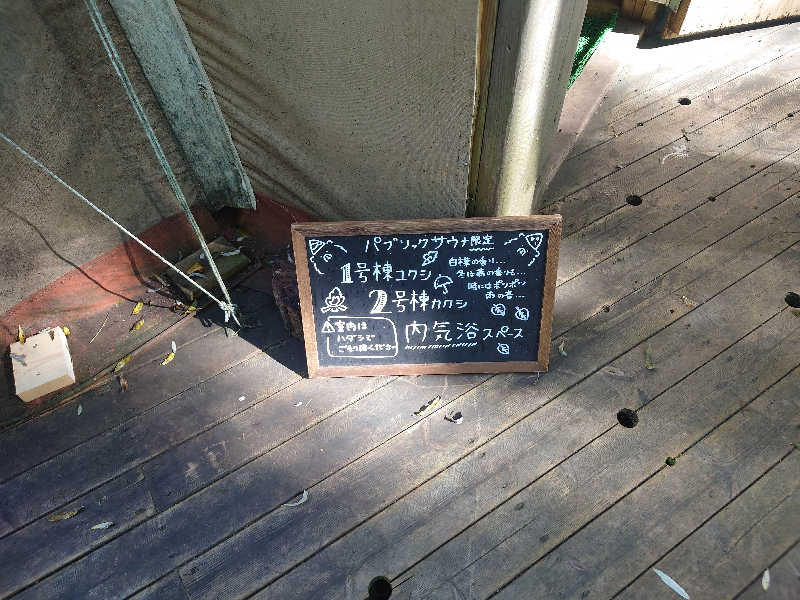 パブリックサウナ限定
1号棟ユクシ
2号棟カクシ
白樺の香り...
冬は森の香りも...
時にはポツポツ
雨の音...
内気浴スペース
⚠室内は
ハダシで
ご利用ください